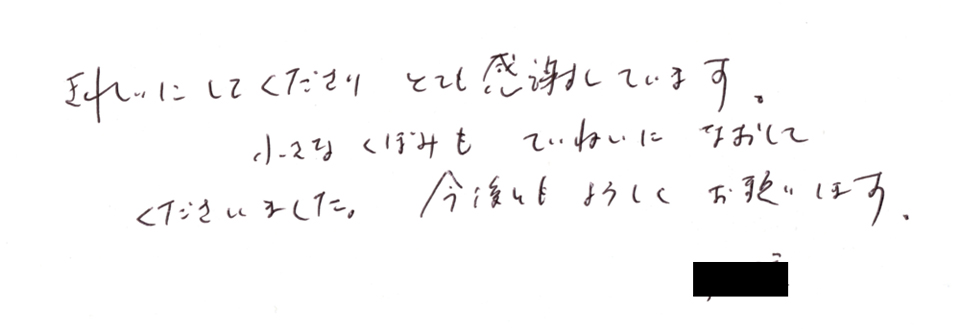 きれいにしてくださり とても感謝しています。
小さなくぼみも ていねいに なおして
くださいました。 今後とも よろしく お願いします。